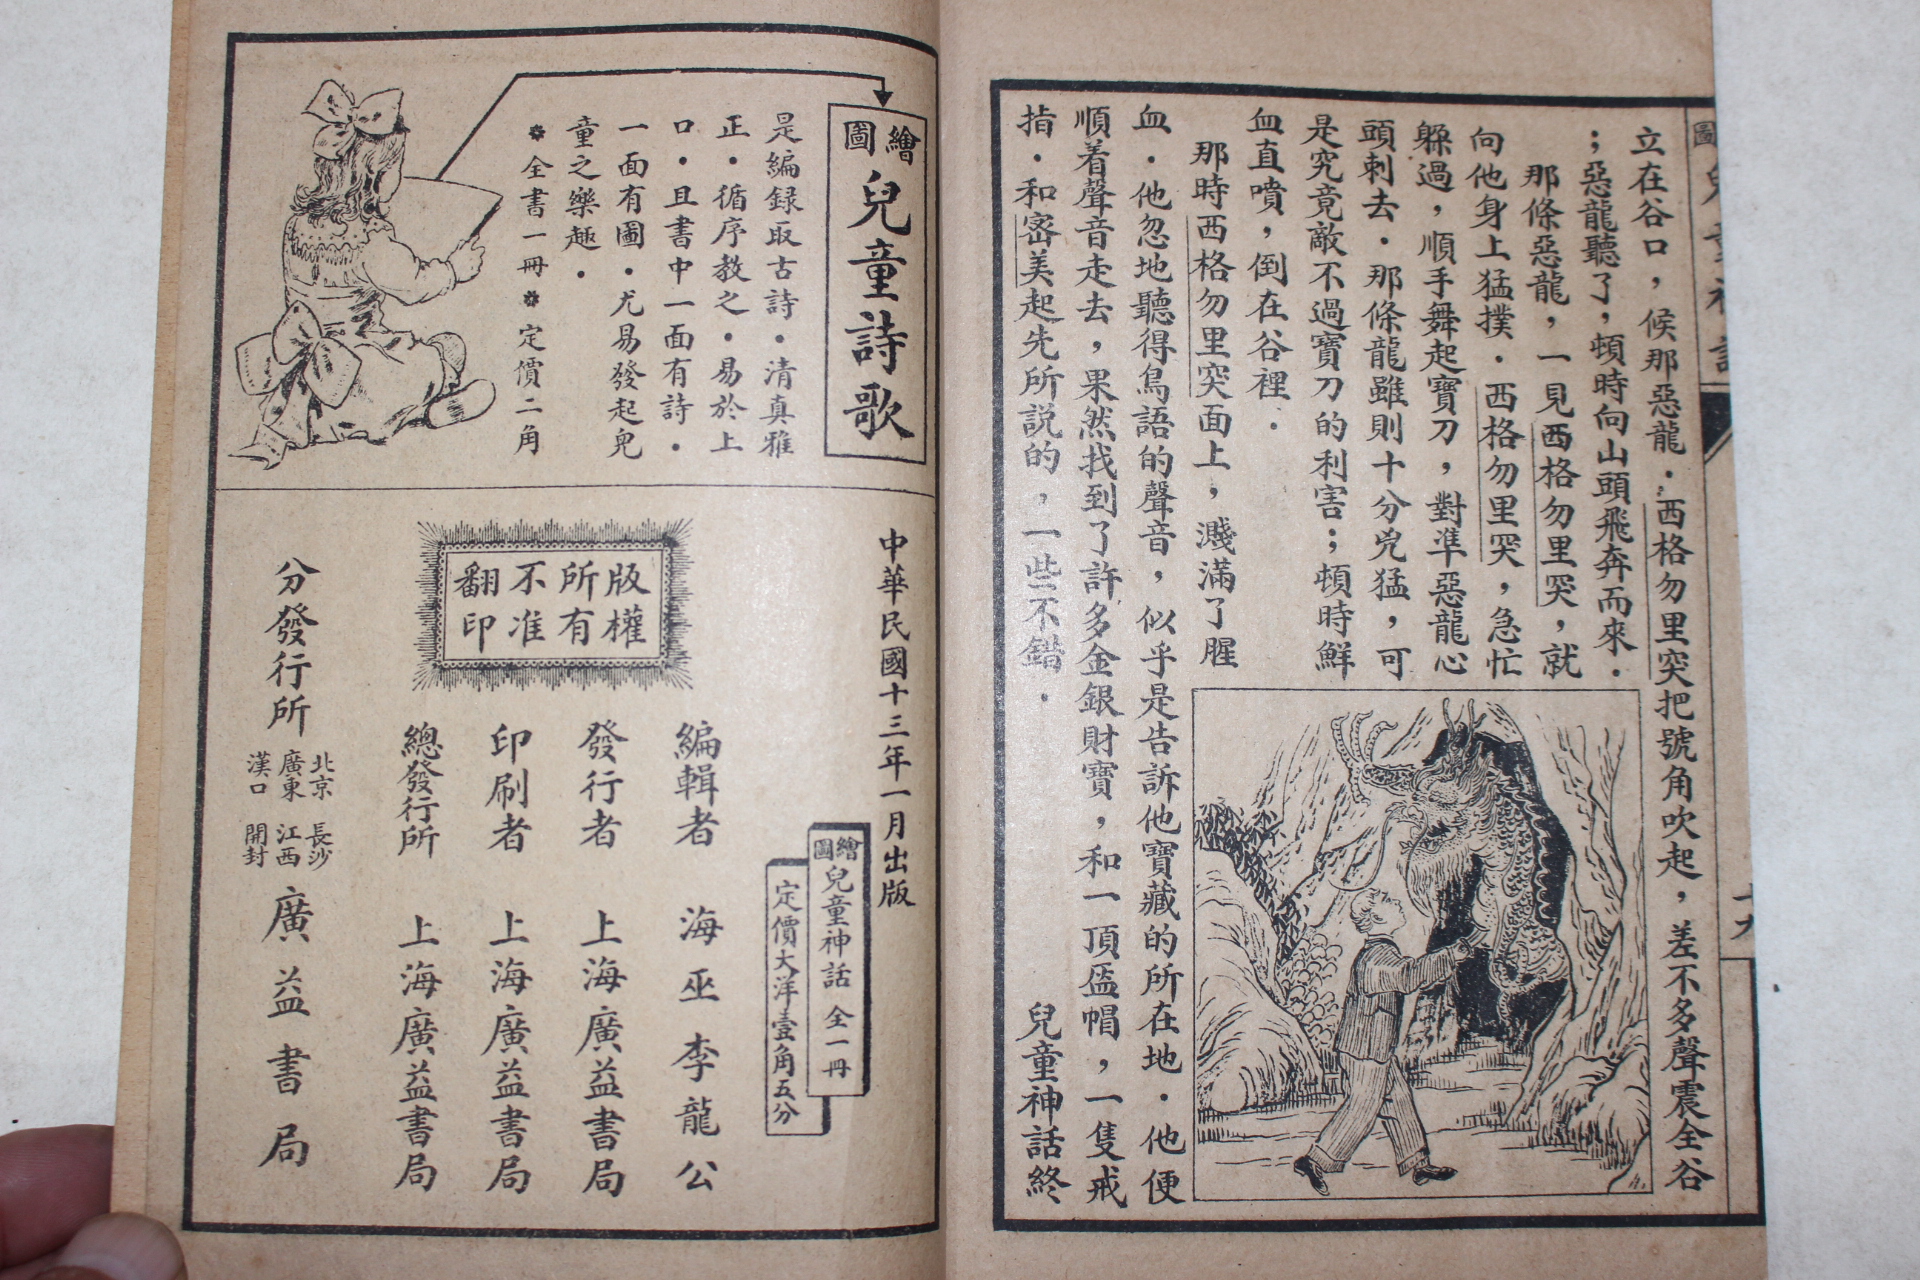 立在谷口，候那惡龍．西格勿里突把號角吹起，差不多聲震全谷
；惡龍聽了，頓時向山頭飛奔而來．
那條惡龍，一見西格勿里突，就
向他身上猛撲．西格勿里突，急忙
躱過，順手舞起寶刀，對準惡龍心
頭刺去．那條龍雖則十分兇猛，可
是究竟敵不過寶刀的利害；頓時鮮
血直噴，倒在谷裡．
那時西格勿里突面上，濺滿了腥
血．他忽地聽得鳥語的聲音，似乎是告訴他寶藏的所在地．他便
順着聲音走去，果然找到了許多金銀財寶，和一頂盔帽，一隻戒
指．和密美起先所説的，一些不錯．
兒童神話終
繪圖兒童詩歌
是編録取古詩．清真雅
正．循序教之．易於上
口．且書中一面有詩．
一面有圖．尤易發起兒
童之樂趣．
＊全書一冊＊定價二角
中華民國十三年一月出版
繪圖兒童神話 全一冊
定價大洋壹角五分
版權所有不准翻印
編輯者 海巫李龍公
發行者 上海廣益書局
印刷者 上海廣益書局
總發行所 上海廣益書局
分發行所 北京 長沙 廣東 江西 漢口 開封 廣益書局